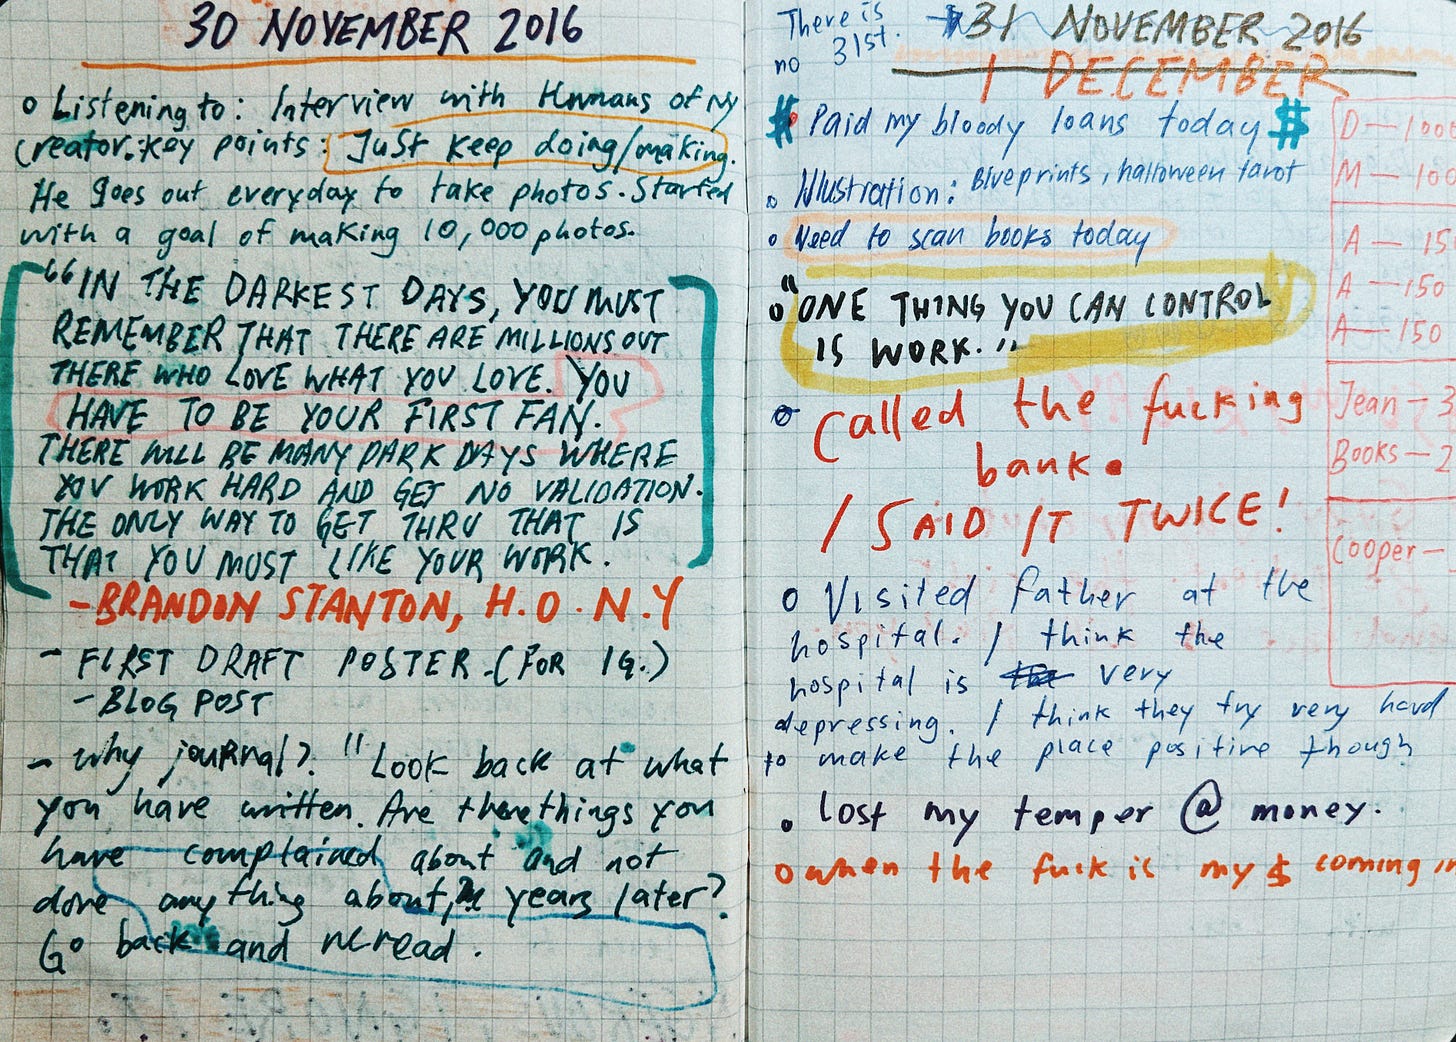 30 NOVEMBER 2016
o Listening to: Interview with Humans of NY
creator. Key points: Just keep doing/making.
He goes out everyday to take photos. Started
with a goal of making 10,000 photos.
"IN THE DARKEST DAYS, YOU MUST
REMEMBER THAT THERE ARE MILLIONS OUT
THERE WHO LOVE WHAT YOU LOVE. YOU
HAVE TO BE YOUR FIRST FAN.
THERE WILL BE MANY DARK DAYS WHERE
YOU WORK HARD AND GET NO VALIDATION.
THE ONLY WAY TO GET THRU THAT IS
THAT YOU MUST LIKE YOUR WORK.
- BRANDON STANTON, H.O.N.Y
- FIRST DRAFT POSTER. (FOR IG.)
- BLOG POST
- Why journal? "Look back at what
you have written. Are there things you
have complained about and not
done anything about, years later?
Go back and reread.
There is
no 31st.
31 NOVEMBER 2016
1 DECEMBER
$ Paid my bloody loans today $
o Illustration: Blueprints, halloween tarot
o Need to scan books today
o "ONE THING YOU CAN CONTROL
IS WORK."
o Called the fucking
bank.
I SAID IT TWICE!
o Visited father at the
hospital. I think the
hospital is very
depressing. I think they try very hard
to make the place positive though
o Lost my temper @ money.
o when the fuck is my $ coming in
D — 100
M — 100
A — 15
A — 150
A — 150
Jean — 3
Books — 2
Cooper —